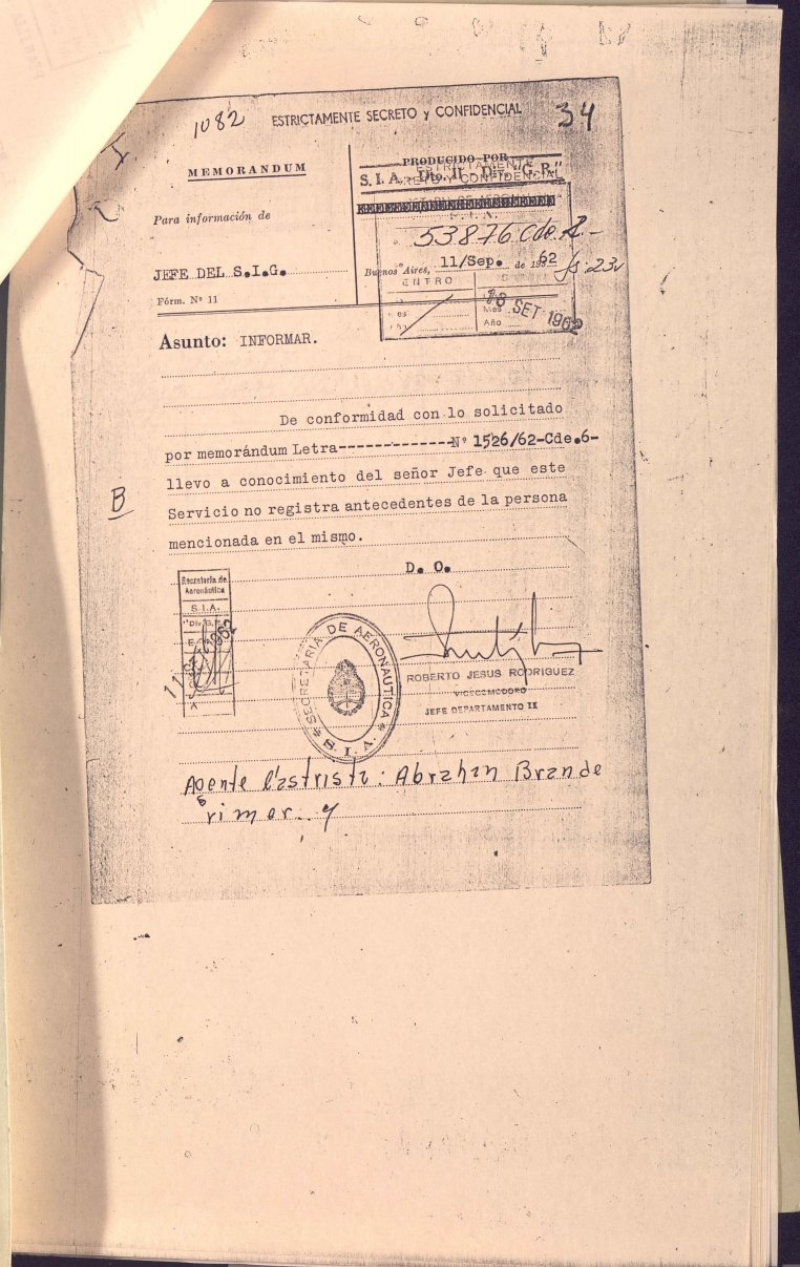 1082
ESTRICTAMENTE SECRETO y CONFIDENCIAL
34
MEMORANDUM
Para información de
JEFE DEL S.I.G.
Fórm. Nº 11
PRODUCIDO POR
S. I. A.
53876 Cde 2-
Buenos Aires, 11/Sep. de 1962
fs 23v
ENTRO
18 SET 1962
Mes
Año
Asunto: INFORMAR.
De conformidad con lo solicitado
por memorándum Letra-------------Nº 1526/62-Cde.6-
llevo a conocimiento del señor Jefe que este
Servicio no registra antecedentes de la persona
mencionada en el mismo.
B
D. O.
Secretaría de
Aeronáutica
S.I.A.
SECRETARIA DE AERONAUTICA
ROBERTO JESUS RODRIGUEZ
VICECOMODORO
JEFE DEPARTAMENTO II
Agente Castrista: Abrahan